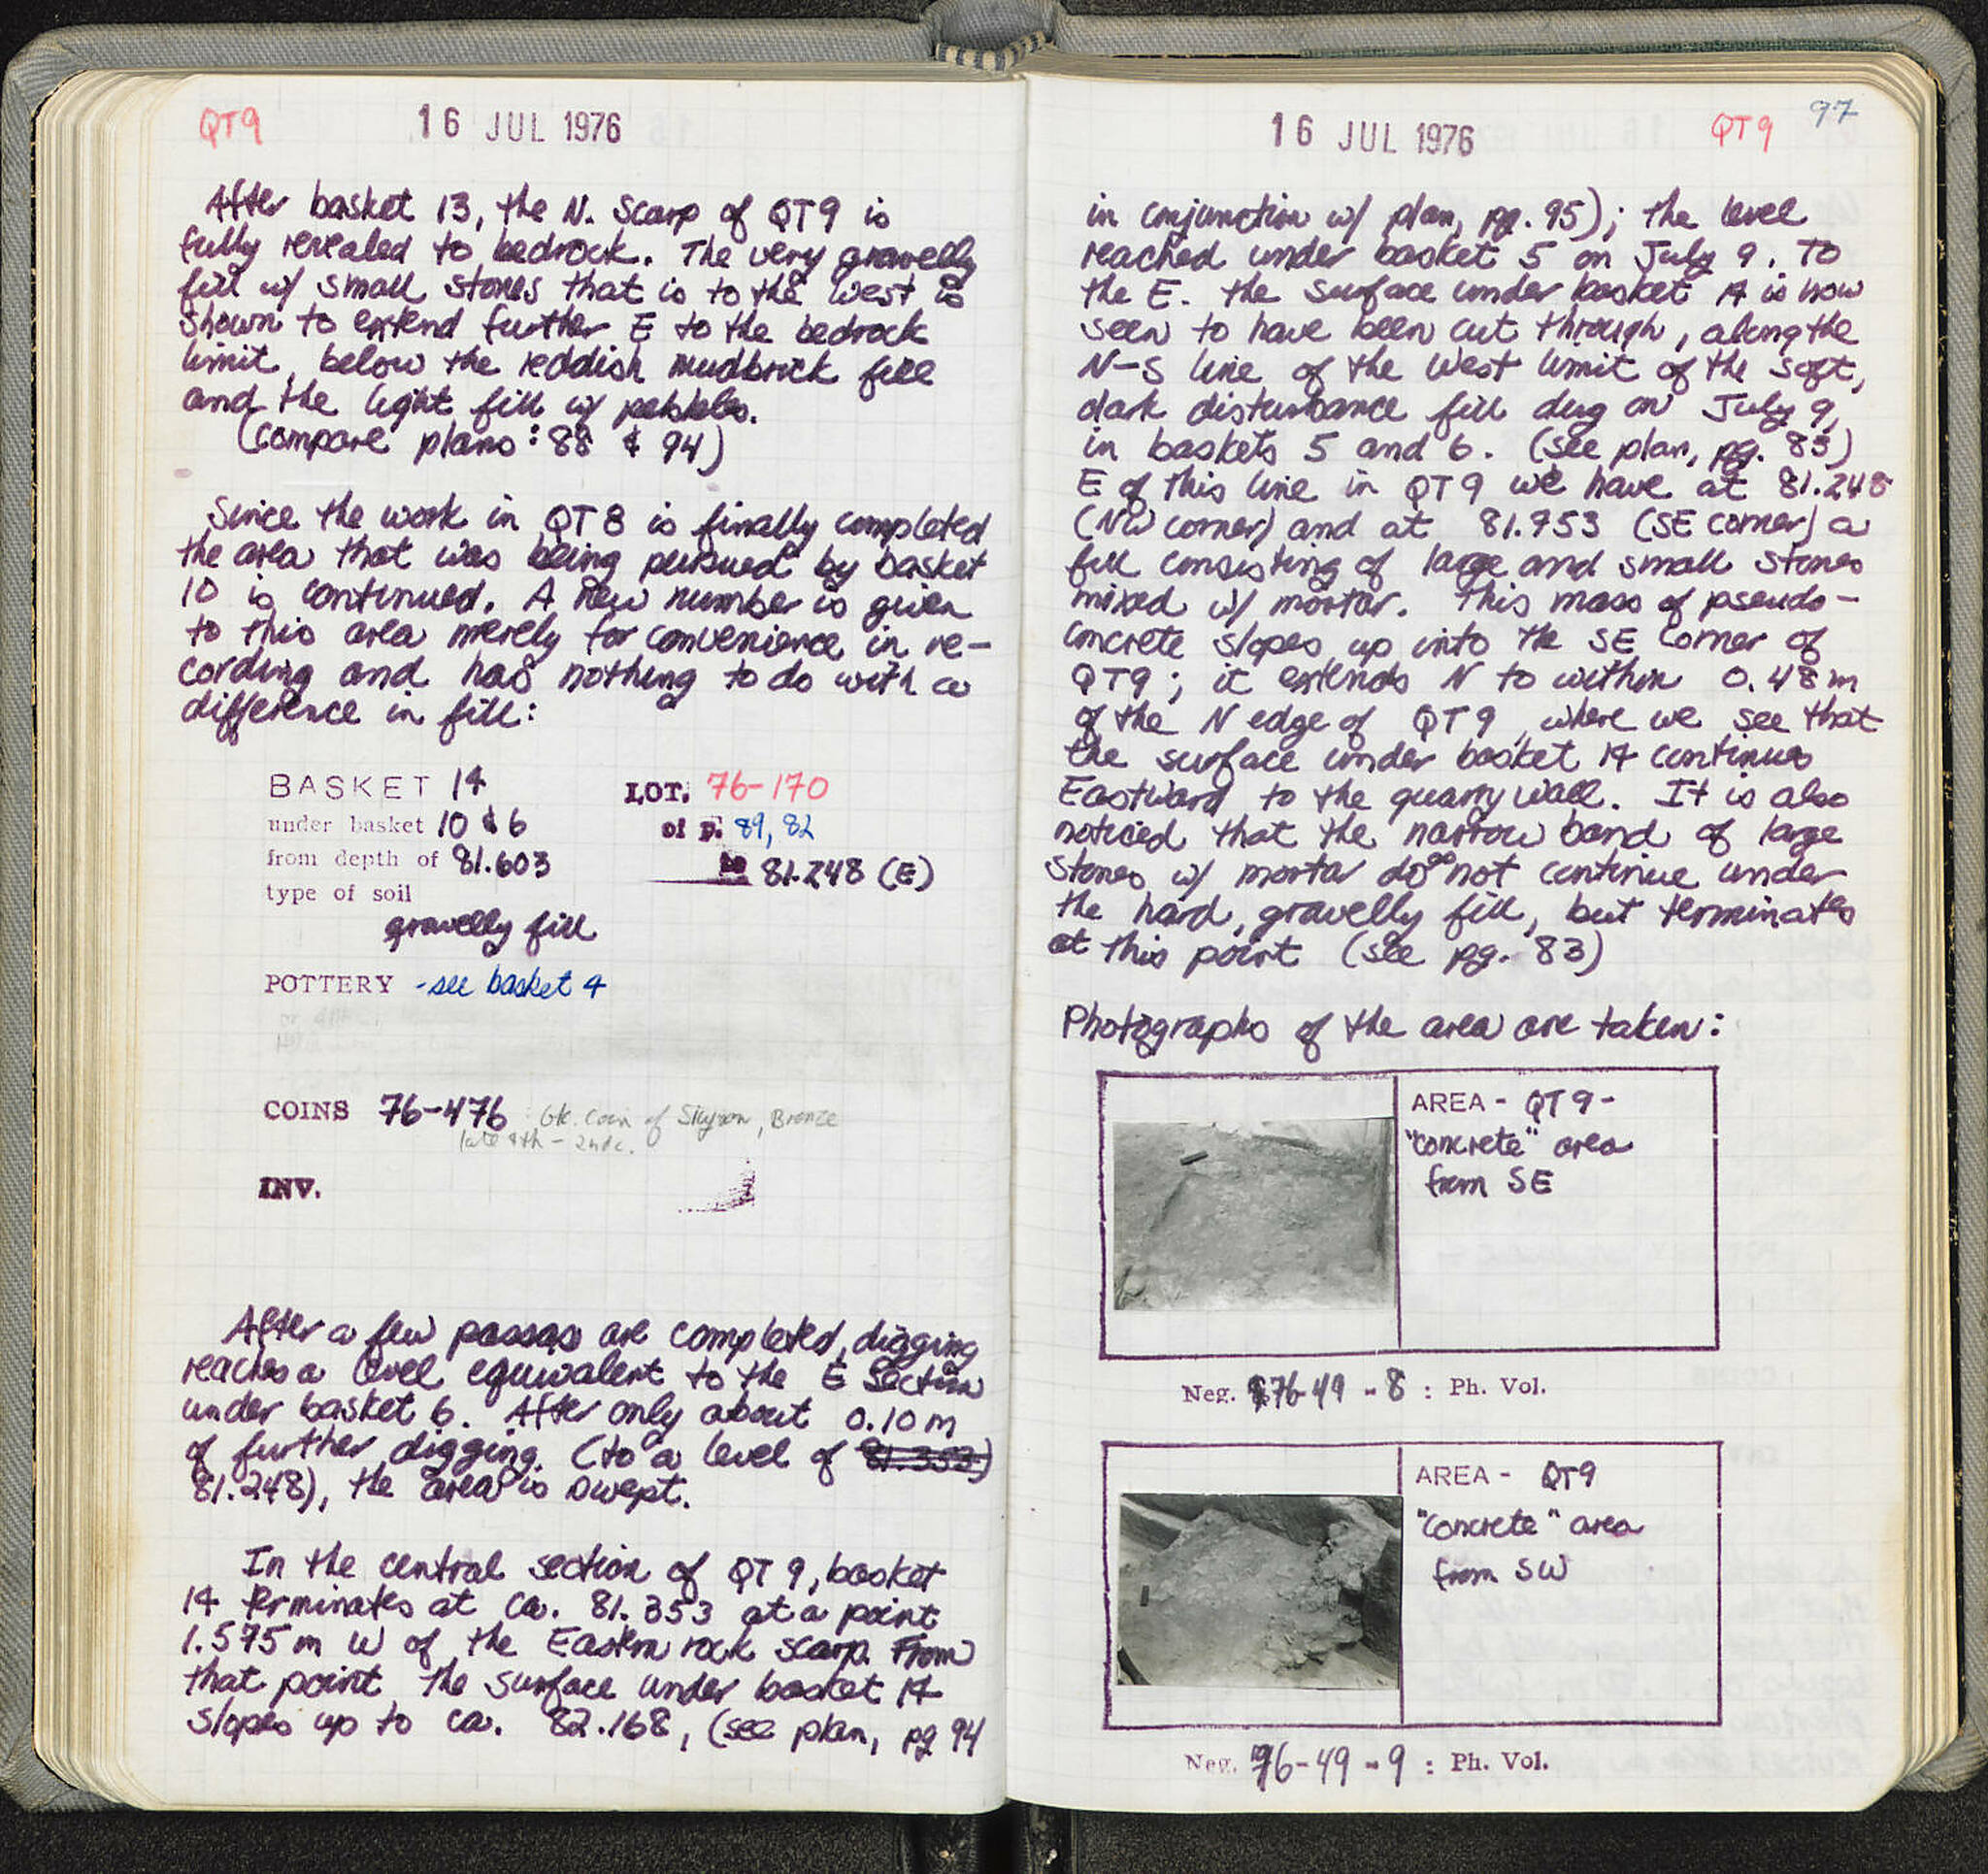 QT9
16 JUL 1976
After basket 13, the N. scarp of QT9 is
fully revealed to bedrock. The very gravelly
fill w/ small stones that is to the West is
shown to extend further E to the bedrock
limit, below the reddish mudbrick fill
and the light fill w/ pebbles.
(compare plans: 88 & 94)
Since the work in QT8 is finally completed
the area that was being pursued by basket
10 is continued. A new number is given
to this area merely for convenience in re-
cording and has nothing to do with a
difference in fill:
BASKET 14
LOT. 76-170
under basket 10 & 6
of p. 89, 82
from depth of 81.603
to 81.248 (E)
type of soil
gravelly fill
POTTERY - see basket 4
COINS 76-476 : Gk. Coin of Sikyon, Bronze
late 4th - 2nd c.
INV.
After a few passes are completed, digging
reaches a level equivalent to the E section
under basket 6. After only about 0.10 m
of further digging (to a level of 81.353)
81.248), the area is swept.
In the central section of QT 9, basket
14 terminates at ca. 81.353 at a point
1.575 m W of the Eastern rock scarp. From
that point the surface under basket 14
slopes up to ca. 82.168, (see plan, pg 94
97
16 JUL 1976
QT9
in conjunction w/ plan, pg. 95); the level
reached under basket 5 on July 9. To
the E. the surface under basket 14 is now
seen to have been cut through, along the
N-S line of the West limit of the soft,
dark disturbance fill dug on July 9,
in baskets 5 and 6. (see plan, pg. 83)
E of this line in QT9 we have at 81.248
(NW corner) and at 81.753 (SE corner) a
fill consisting of large and small stones
mixed w/ mortar. This mass of pseudo-
concrete slopes up into the SE corner of
QT9; it extends N to within 0.48 m
of the N edge of QT9, where we see that
the surface under basket 14 continues
Eastward to the quarry wall. It is also
noticed that the narrow band of large
stones w/ mortar does not continue under
the hard, gravelly fill, but terminates
at this point (see pg. 83)
Photographs of the area are taken:
AREA - QT9 -
"concrete" area
from SE
Neg. 76-49-8 : Ph. Vol.
AREA - QT9
"concrete" area
from SW
Neg. 76-49-9 : Ph. Vol.